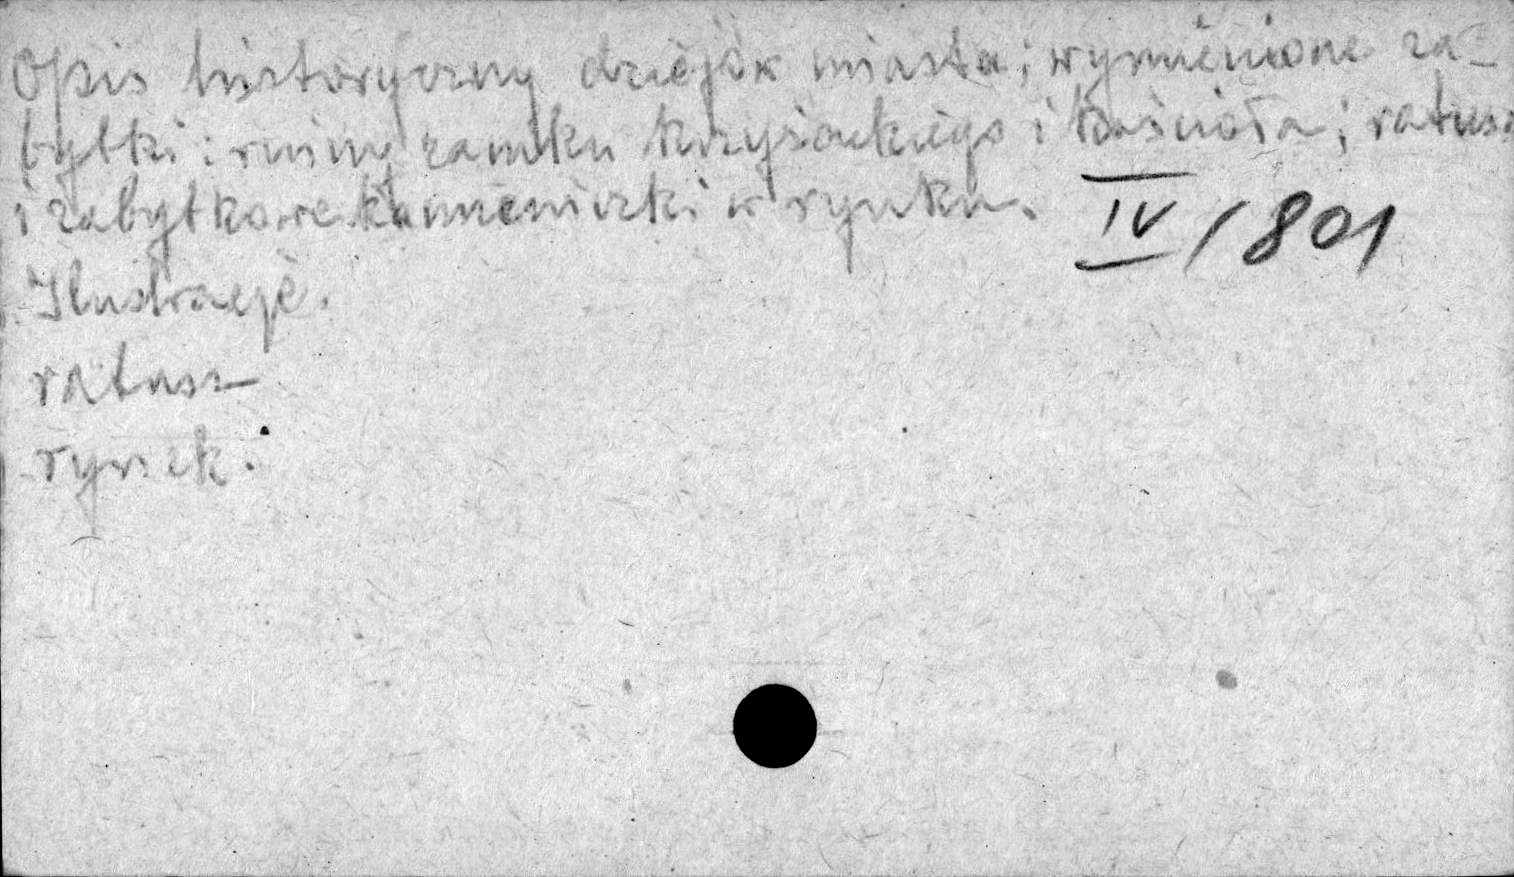 Opis historyczny dziejów miasta; wymienione za-
bytki: ruiny zamku krzyżackiego i kościoła; ratusz
i zabytkowe kamieniczki w rynku. IV/801
Ilustracje.
ratusz
rynek.